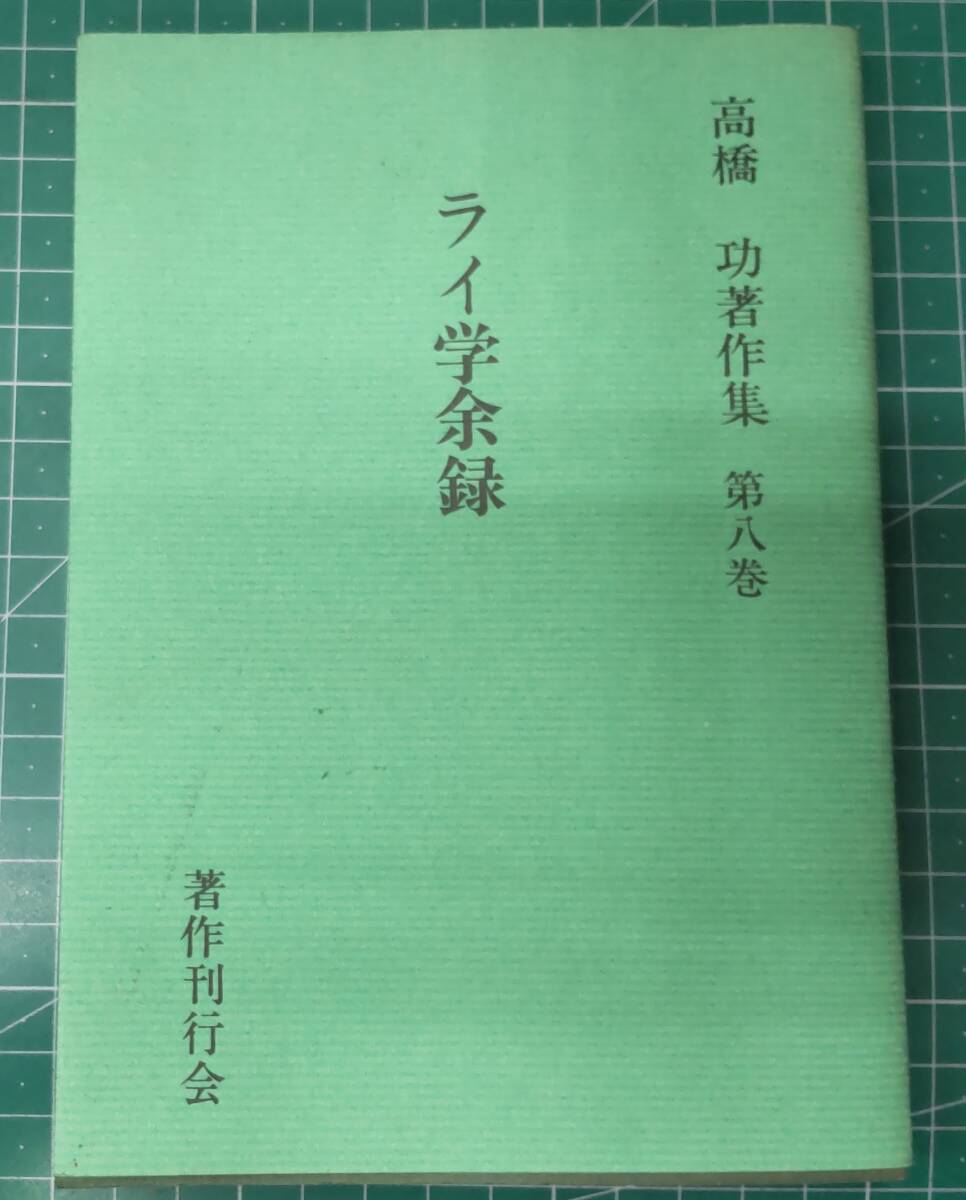 高橋 功著作集 第八巻
ライ学余録
著作刊行会